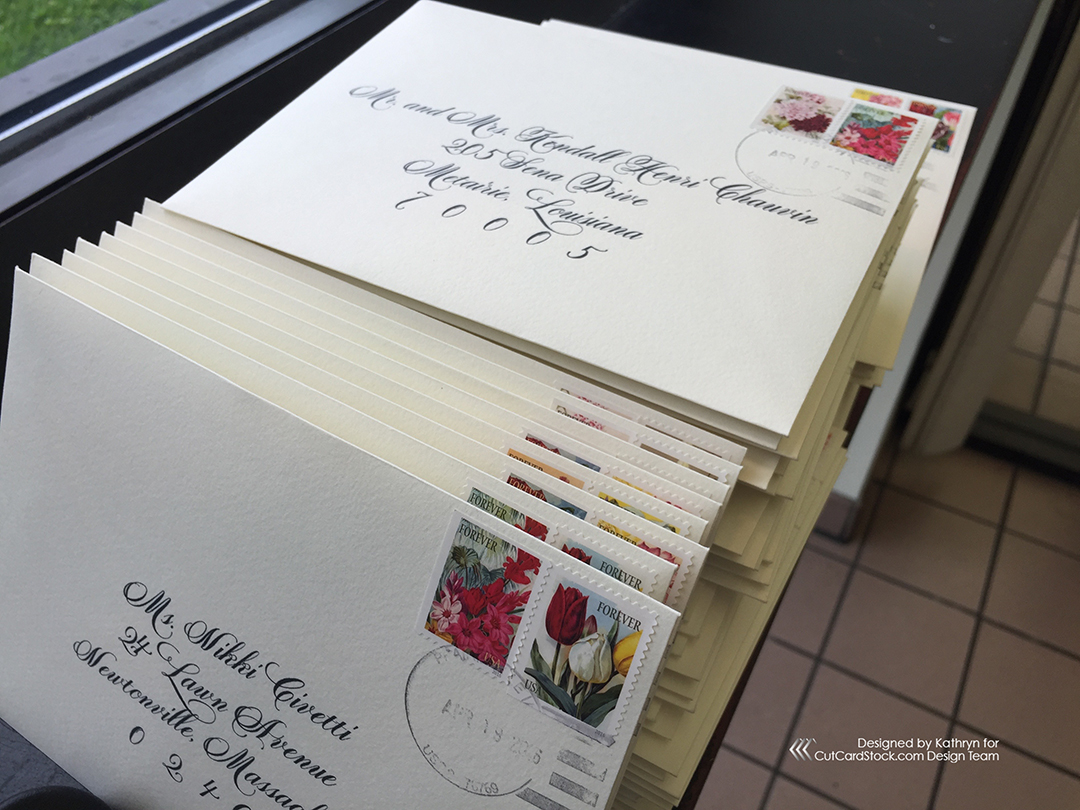 Mr. and Mrs. Kendall Henri Chauvin
205 Sena Drive
Metarie, Louisiana
7 0 0 0 5
APR 18
FOREVER
FOREVER
FOREVER
FOREVER
FOREVER
FOREVER
FOREVER
USA
APR 18 2016
Ms. Nikki Civetti
24 Lawn Avenue
Newtonville,
0 2 4
Designed by Kathryn for
CutCardStock.com Design Team